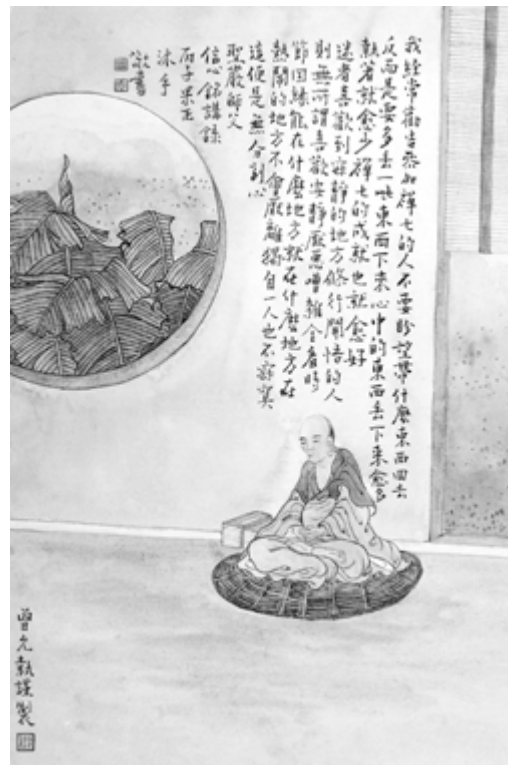 我經常勸告參加禪七的人不要盼望帶什麼東西回去
反而是要多丟一些東西下來心中的東西丟下來愈多
執著就愈少禪七的成就也就愈好
迷者喜歡到寂靜的地方修行開悟的人
則無所謂喜歡安靜厭惡嘈雜全看時
節因緣能在什麼地方就在什麼地方在
熱鬧的地方不會厭離獨自一人也不寂寞
這便是無分別心
聖嚴師父
信心銘講錄
丙子果正
沐手
敬書
曾允執謹製